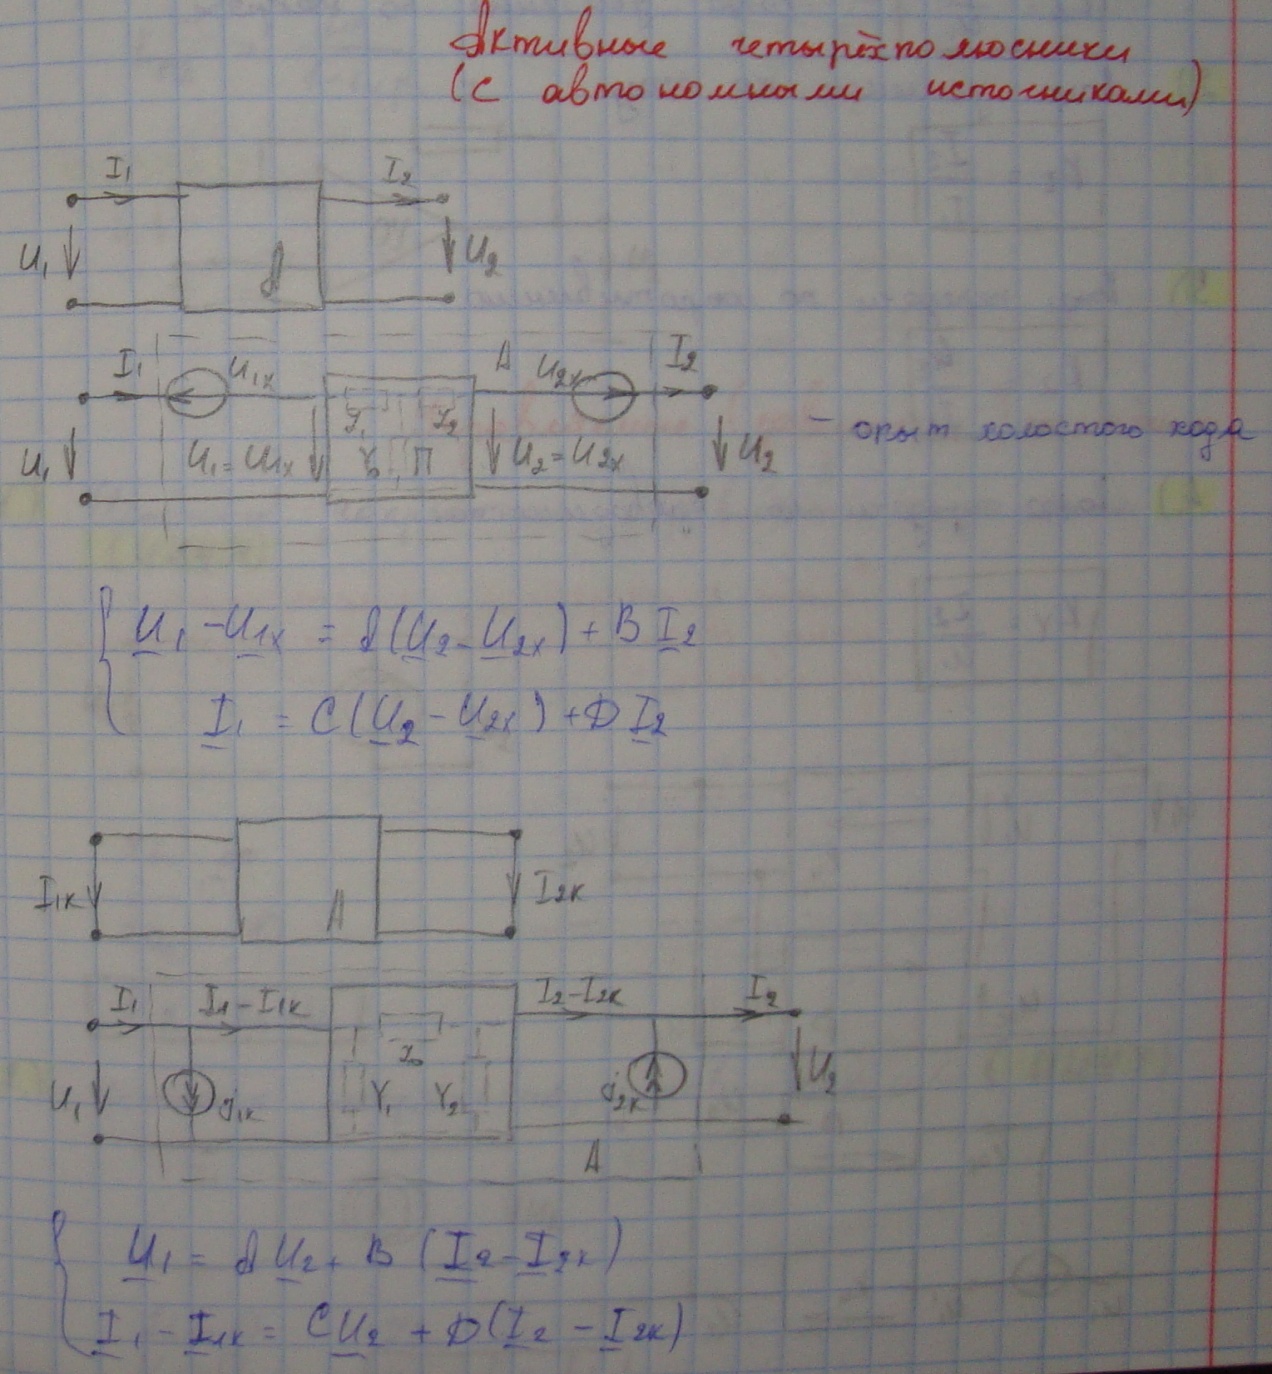 Активные четырёхполюсники
(с автономными источниками)
I₁ I₂
U₁ A U₂
I₁ U₁ₓ A U₂ₓ I₂
U₁ U₁=U₁ₓ Y₀ П U₂=U₂ₓ U₂ – опыт холостого хода
U₁ - U₁ₓ = A(U₂ - U₂ₓ) + B I₂
I₁ = C(U₂ - U₂ₓ) + D I₂
I₁к A I₂к
I₁ I₁-I₁к I₂-I₂к I₂
U₁ j₁к Y₁ Y₂ j₂к U₂
A
U₁ = A U₂ + B (I₂ - I₂к)
I₁ - I₁к = C U₂ + D(I₂ - I₂к)